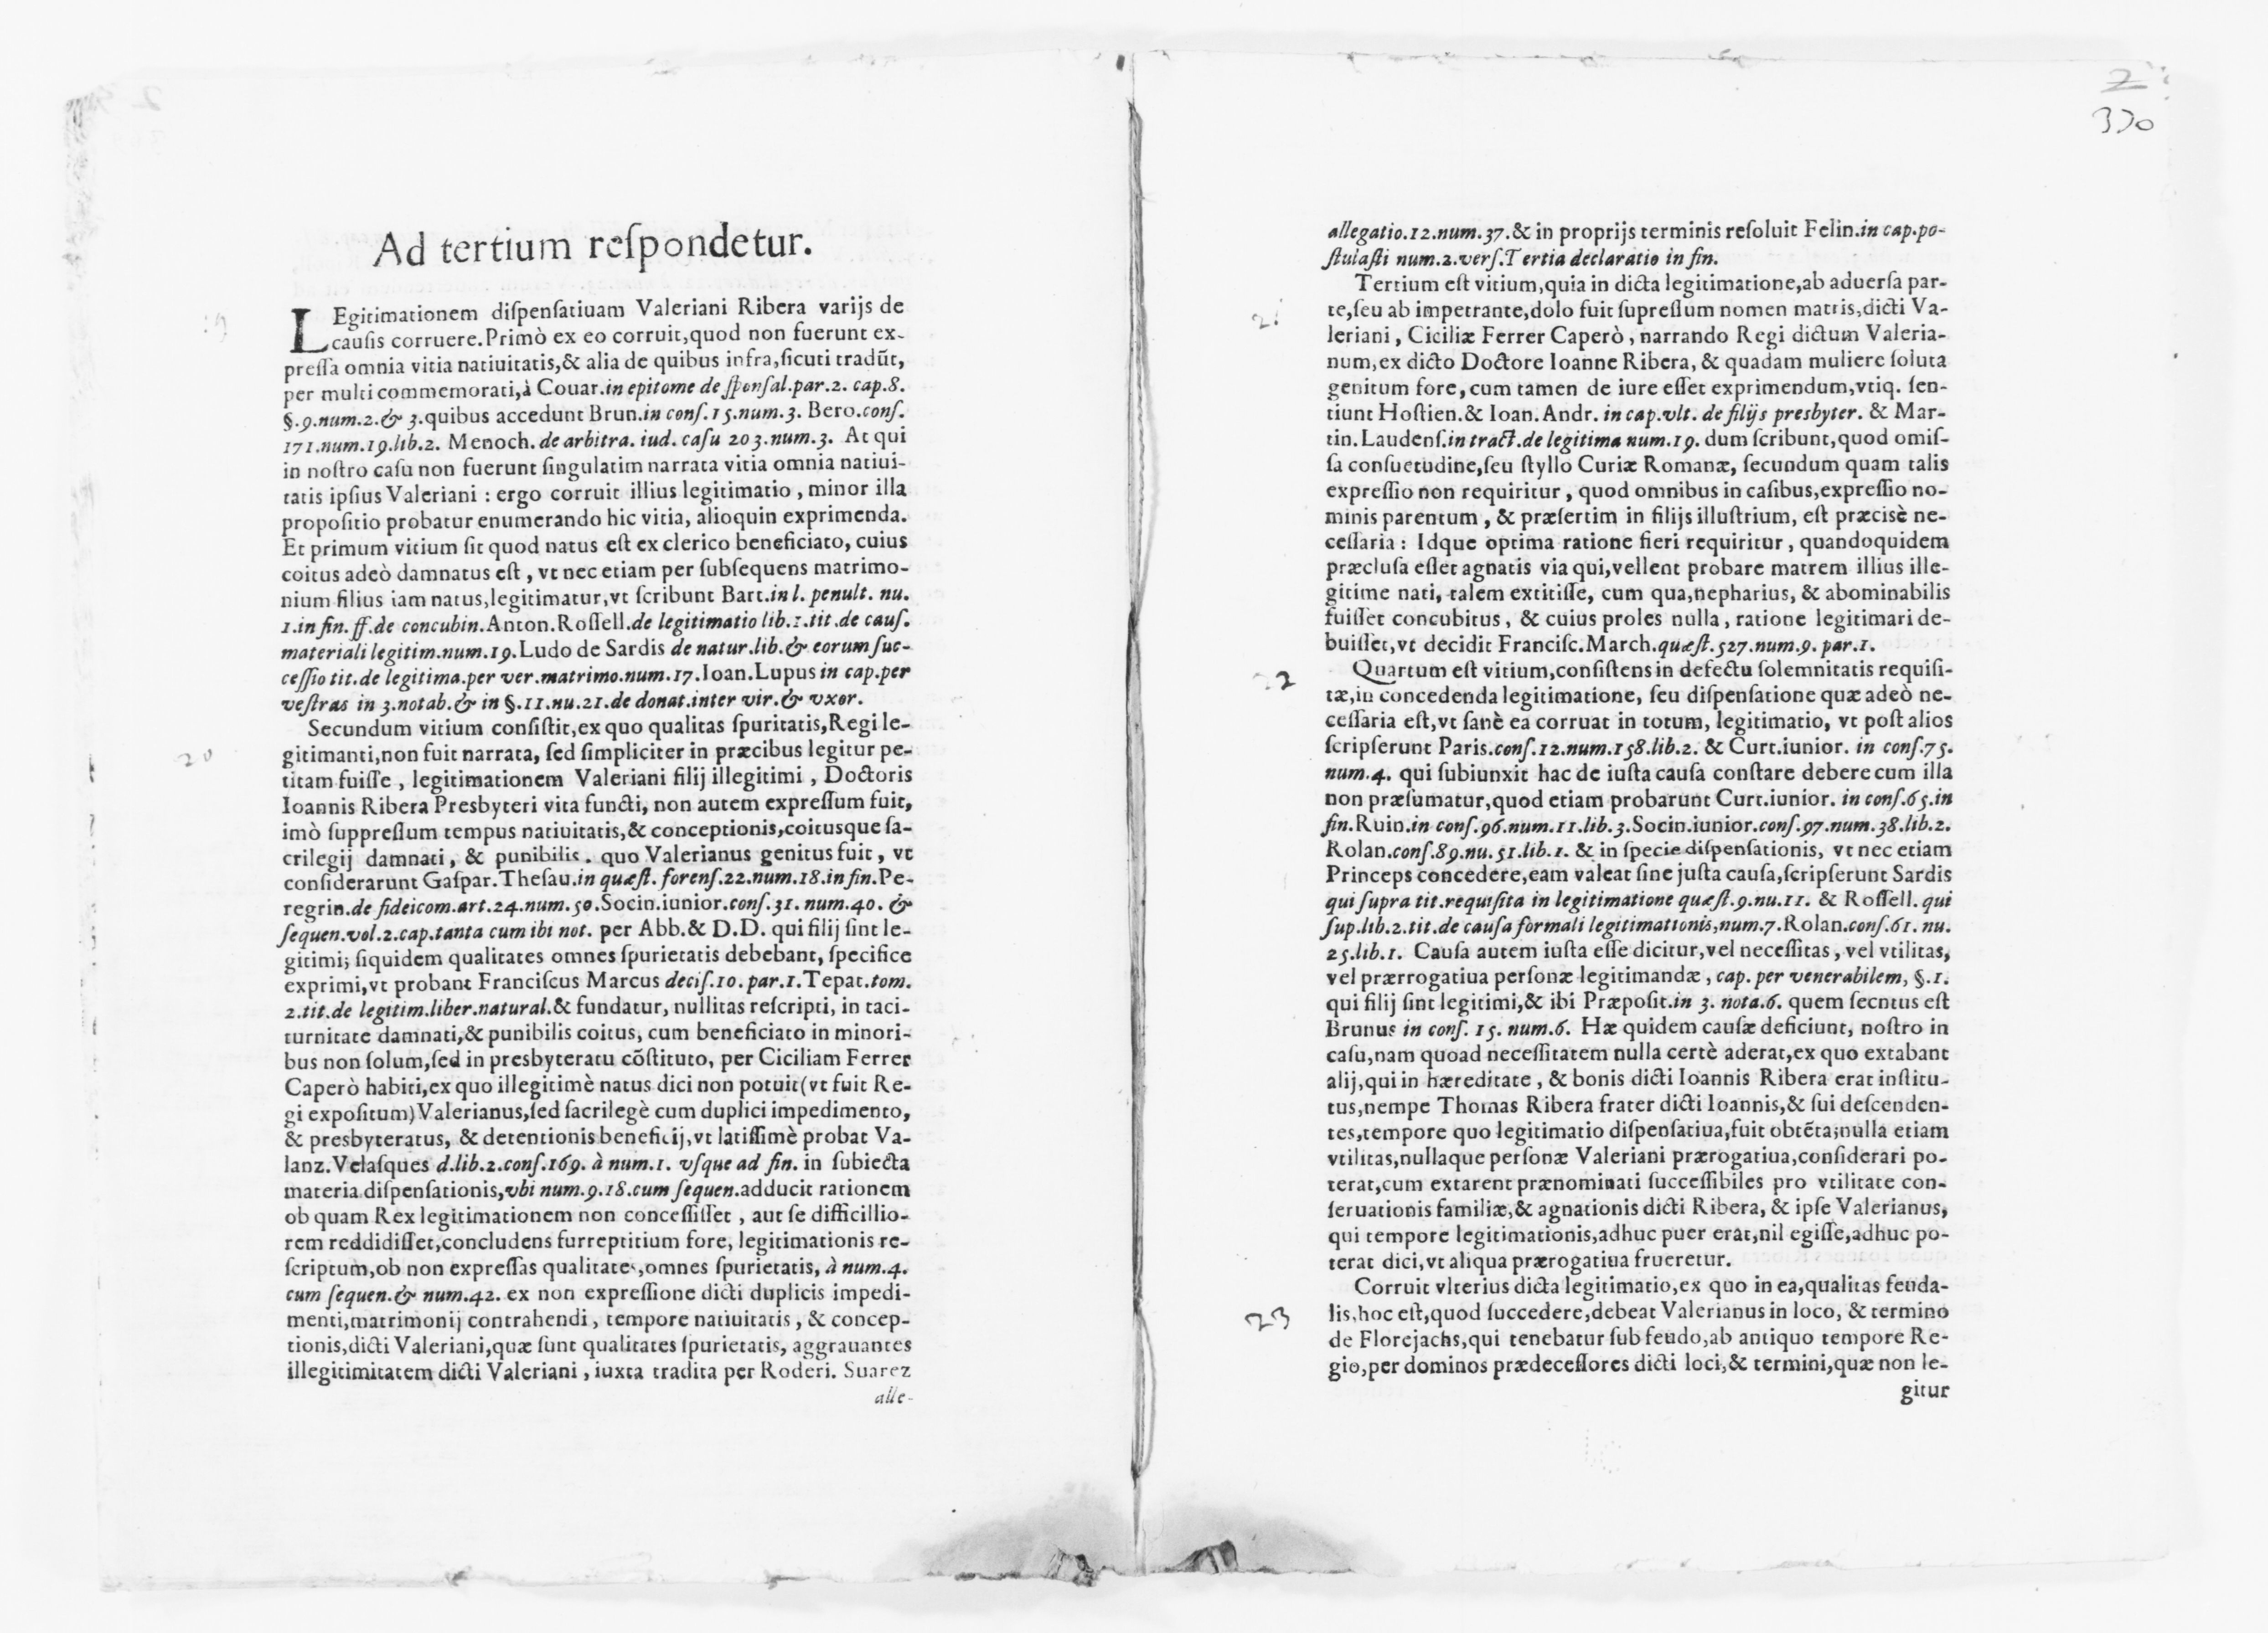 Ad tertium reſpondetur.
19
LEgitimationem diſpenſatiuam Valeriani Ribera varijs de
cauſis corruere. Primò ex eo corruit, quod non fuerunt ex-
preſſa omnia vitia natiuitatis, & alia de quibus infra, ſicuti tradũt,
per multi commemorati, à Couar. in epitome de ſponſal. par. 2. cap. 8.
§. 9. num. 2. & 3. quibus accedunt Brun. in conſ. 15. num. 3. Bero. conſ.
171. num. 19. lib. 2. Menoch. de arbitra. iud. caſu 203. num. 3. At qui
in noſtro caſu non fuerunt ſingulatim narrata vitia omnia natiui-
tatis ipſius Valeriani : ergo corruit illius legitimatio, minor illa
propoſitio probatur enumerando hic vitia, alioquin exprimenda.
Et primum vitium ſit quod natus eſt ex clerico beneficiato, cuius
coitus adeò damnatus eſt, vt nec etiam per ſubſequens matrimo-
nium filius iam natus, legitimatur, vt ſcribunt Bart. in l. penult. nu.
1. in fin. ff. de concubin. Anton. Roſſell. de legitimatio lib. 1. tit. de cauſ.
materiali legitim. num. 19. Ludo de Sardis de natur. lib. & eorum ſuc-
ceſſio tit. de legitima. per ver. matrimo. num. 17. Ioan. Lupus in cap. per
veſtras in 3. notab. & in §. 11. nu. 21. de donat. inter vir. & vxor.
20
Secundum vitium conſiſtit, ex quo qualitas ſpuritatis, Regi le-
gitimanti, non fuit narrata, ſed ſimpliciter in præcibus legitur pe-
titam fuiſſe, legitimationem Valeriani filij illegitimi, Doctoris
Ioannis Ribera Presbyteri vita functi, non autem expreſſum fuit,
imò ſuppreſſum tempus natiuitatis, & conceptionis, coitusque ſa-
crilegij damnati, & punibilis. quo Valerianus genitus fuit, vt
conſiderarunt Gaſpar. Theſau. in quæſt. forenſ. 22. num. 18. in fin. Pe-
regrin. de fideicom. art. 24. num. 50. Socin. iunior. conſ. 31. num. 40. &
ſequen. vol. 2. cap. tanta cum ibi not. per Abb. & D.D. qui filij ſint le-
gitimi; ſiquidem qualitates omnes ſpurietatis debebant, ſpecifice
exprimi, vt probant Franciſcus Marcus deciſ. 10. par. 1. Tepat. tom.
2. tit. de legitim. liber. natural. & fundatur, nullitas reſcripti, in taci-
turnitate damnati, & punibilis coitus, cum beneficiato in minori-
bus non ſolum, ſed in presbyteratu cõſtituto, per Ciciliam Ferrer
Caperò habiti, ex quo illegitimè natus dici non potuit (vt fuit Re-
gi expoſitum) Valerianus, ſed ſacrilegè cum duplici impedimento,
& presbyteratus, & detentionis beneficij, vt latiſſimè probat Va-
lanz. Velaſques d. lib. 2. conſ. 169. à num. 1. vſque ad fin. in ſubiecta
materia diſpenſationis, vbi num. 9. 18. cum ſequen. adducit rationem
ob quam Rex legitimationem non conceſſiſſet, aut ſe difficillio-
rem reddidiſſet, concludens ſurreptitium fore, legitimationis re-
ſcriptum, ob non expreſſas qualitates, omnes ſpurietatis, à num. 4.
cum ſequen. & num. 42. ex non expreſſione dicti duplicis impedi-
menti, matrimonij contrahendi, tempore natiuitatis, & concep-
tionis, dicti Valeriani, quæ ſunt qualitates ſpurietatis, aggrauantes
illegitimitatem dicti Valeriani, iuxta tradita per Roderi. Suarez
alle-
2
330
allegatio. 12. num. 37. & in proprijs terminis reſoluit Felin. in cap. po-
ſtulaſti num. 2. verſ. Tertia declaratio in fin.
21
Tertium eſt vitium, quia in dicta legitimatione, ab aduerſa par-
te, ſeu ab impetrante, dolo fuit ſupreſſum nomen matris, dicti Va-
leriani, Ciciliæ Ferrer Caperò, narrando Regi dictum Valeria-
num, ex dicto Doctore Ioanne Ribera, & quadam muliere ſoluta
genitum fore, cum tamen de iure eſſet exprimendum, vtiq. ſen-
tiunt Hoſtien. & Ioan. Andr. in cap. vlt. de filijs presbyter. & Mar-
tin. Laudenſ. in tract. de legitima num. 19. dum ſcribunt, quod omiſ-
ſa conſuetudine, ſeu ſtyllo Curiæ Romanæ, ſecundum quam talis
expreſſio non requiritur, quod omnibus in caſibus, expreſſio no-
minis parentum, & præſertim in filijs illuſtrium, eſt præcisè ne-
ceſſaria : Idque optima ratione fieri requiritur, quandoquidem
præcluſa eſſet agnatis via qui, vellent probare matrem illius ille-
gitime nati, talem extitiſſe, cum qua, nepharius, & abominabilis
fuiſſet concubitus, & cuius proles nulla, ratione legitimari de-
buiſſet, vt decidit Franciſc. March. quæſt. 527. num. 9. par. 1.
22
Quartum eſt vitium, conſiſtens in defectu ſolemnitatis requiſi-
tæ, in concedenda legitimatione, ſeu diſpenſatione quæ adeò ne-
ceſſaria eſt, vt ſanè ea corruat in totum, legitimatio, vt poſt alios
ſcripſerunt Paris. conſ. 12. num. 158. lib. 2. & Curt. iunior. in conſ. 75.
num. 4. qui ſubiunxit hac de iuſta cauſa conſtare debere cum illa
non præſumatur, quod etiam probarunt Curt. iunior. in conſ. 65. in
fin. Ruin. in conſ. 96. num. 11. lib. 3. Socin. iunior. conſ. 97. num. 38. lib. 2.
Rolan. conſ. 89. nu. 51. lib. 1. & in ſpecie diſpenſationis, vt nec etiam
Princeps concedere, eam valeat ſine juſta cauſa, ſcripſerunt Sardis
qui ſupra tit. requiſita in legitimatione quæſt. 9. nu. 11. & Roſſell. qui
ſup. lib. 2. tit. de cauſa formali legitimationis, num. 7. Rolan. conſ. 61. nu.
25. lib. 1. Cauſa autem iuſta eſſe dicitur, vel neceſſitas, vel vtilitas,
vel prærrogatiua perſonæ legitimandæ, cap. per venerabilem, §. 1.
qui filij ſint legitimi, & ibi Præpoſit. in 3. nota. 6. quem ſecntus eſt
Brunus in conſ. 15. num. 6. Hæ quidem cauſæ deficiunt, noſtro in
caſu, nam quoad neceſſitatem nulla certè aderat, ex quo extabant
alij, qui in hæreditate, & bonis dicti Ioannis Ribera erat inſtitu-
tus, nempe Thomas Ribera frater dicti Ioannis, & ſui deſcenden-
tes, tempore quo legitimatio diſpenſatiua, fuit obtẽta; nulla etiam
vtilitas, nullaque perſonæ Valeriani prærogatiua, conſiderari po-
terat, cum extarent prænominati ſucceſſibiles pro vtilitate con-
ſeruationis familiæ, & agnationis dicti Ribera, & ipſe Valerianus,
qui tempore legitimationis, adhuc puer erat, nil egiſſe, adhuc po-
terat dici, vt aliqua prærogatiua frueretur.
23
Corruit vlterius dicta legitimatio, ex quo in ea, qualitas feuda-
lis, hoc eſt, quod ſuccedere, debeat Valerianus in loco, & termino
de Florejachs, qui tenebatur ſub feudo, ab antiquo tempore Re-
gio, per dominos prædeceſſores dicti loci, & termini, quæ non le-
gitur